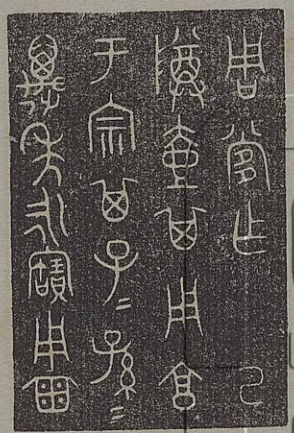 周乍己
尊壺其用享
于宗其子=孫=
萬年永寶用